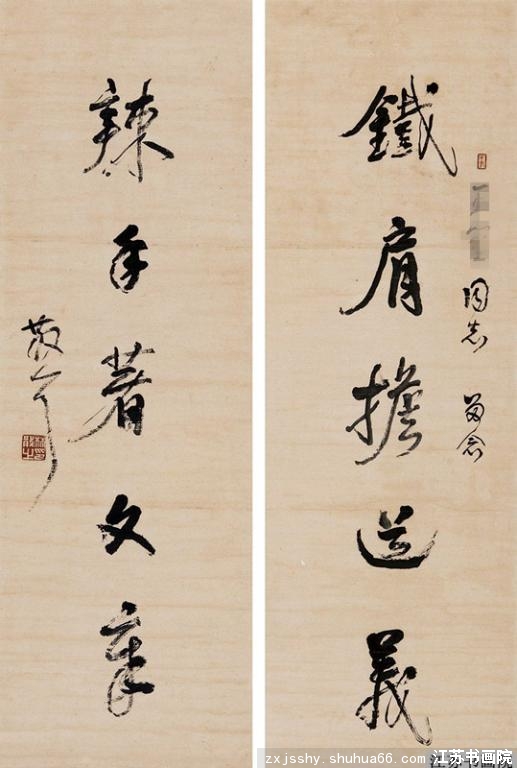 同志 留念
鐵肩擔道義
辣手著文章
散耳
zxjsshy.shuhua66.com 江苏书画院